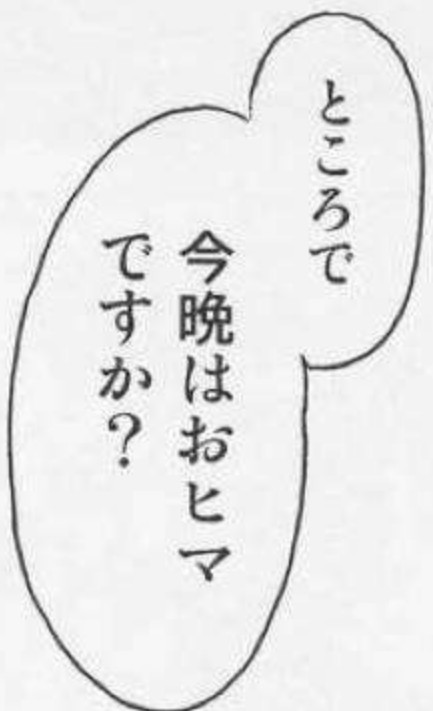 ところで
今晩はおヒマ
ですか?